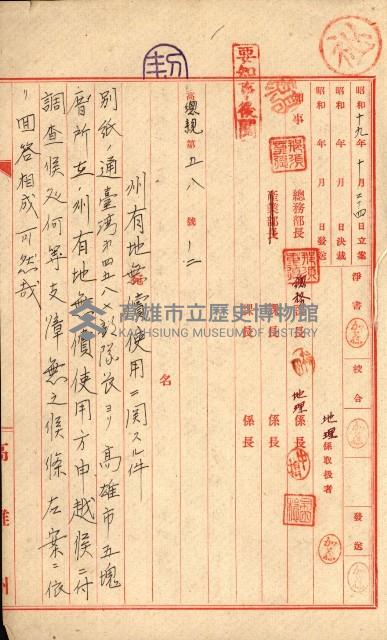 昭和十九年十月二十四日立案
昭和　年　月　日決裁
昭和　年　月　日發送
淨書
校合
發送
地理係取扱者
知事
總務部長
產業部長
課長
課長
課長
地理係長
係長
係長
高總親第五八號ノ二
州有地無償使用ニ関スル件
名
別紙ノ通臺湾第四五八
部隊長ヨリ高雄市五塊
厝所在ノ州有地無償使用方申越候ニ付
調査候処何等支障無之候條左案ニ依
リ回答相成可然哉
高雄州
高雄市立歷史博物館
KAOHSIUNG MUSEUM OF HISTORY